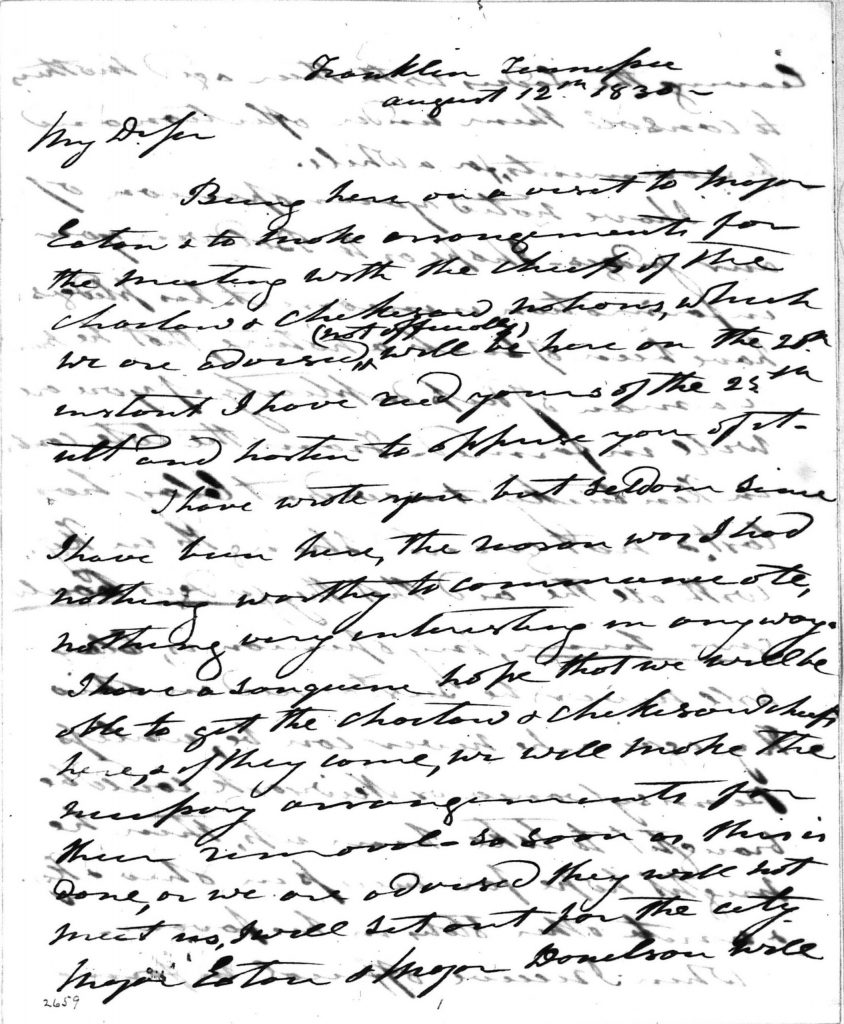 Franklin Tennessee
august 12th 1830-
My Dr. Sir
Being here on a visit to Major
Eaton & to make arrangements for
the meeting with the cheefs of the
choctaw & chekesaw nations, which
(not officially)
we are advised, will be here on the 20th
instant I have recd yours of the 25th
ult and hasten to apprise you of it-
I have wrote you but seldom since
I have been here, the reason was I had
nothing worthy to communicate,
nothing very interesting in any way.
I have a sanguine hope that we will be
able to get the choctaw & chekesaw cheefs
here, & if they come, we will make the
necessary arrangements for
their removal - so soon as this is
done, or we are advised they will not
meet us, I will set out for the city.
Major Eaton & Major Donelson will
2659
1